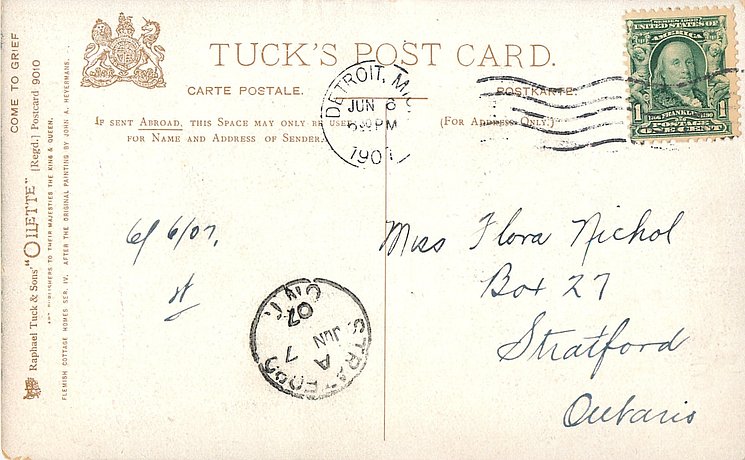 TUCK'S POST CARD.
CARTE POSTALE. POSTKARTE.
IF SENT ABROAD, THIS SPACE MAY ONLY BE USED
FOR NAME AND ADDRESS OF SENDER.
(FOR ADDRESS ONLY.)
COME TO GRIEF
Raphael Tuck & Sons' "OILETTE" [Regd.] Postcard 9010
ART PUBLISHERS TO THEIR MAJESTIES THE KING & QUEEN.
FLEMISH COTTAGE HOMES SER. IV. AFTER THE ORIGINAL PAINTING BY JOHN A. HEYERMANS.
DETROIT,
JUN 6
PM
190
OF AMERICA
1 FRANKLIN 1
ONE CENT
6/6/07.
STRATFORD
ONT
A
JUN 7
07
Miss Flora Nichol
Box 27
Stratford
Ontario